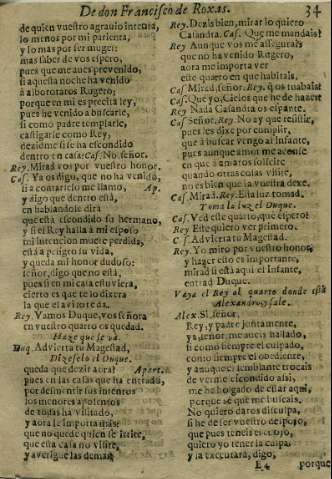 De don Francisco de Roxas. 34
de quien vuestro agrauio intenta,
lo menos por mi parienta,
y lo mas por ser muger:
mas saber de vos espero,
pues que me aueis preuenido,
si aquesta noche ha venido
a alborotaros Rugero;
porque en mi es precisa ley,
pues he venido a buscarle,
si como padre templarle,
castigarle como Rey,
dezidme si se ha escondido
dentro en casa? Cas. No señor.
Rey. Mirad vos por vuestro honor.
Cas. Ya os digo, que no ha venido,
si a contarselo me llamo, Ap.
y digo que dentro está,
en hablandole dirá
que está escondido su hermano,
y si el Rey halla á mi esposo
mi intencion miro perdida,
está a peligro su vida,
y queda mi honor dudoso:
señor, digo que no está,
pues si en mi casa estuuiera,
cierto es que te lo dixera
la que el auiso te da.
Rey. Vamos Duque, vos señora
en vuestro quarto os quedad.
Haze que se va.
Duq. Aduierta tu Magestad,
Dizeselo el Duque.
queda que dezir aora? Apart.
pues en las casas que ha entrado,
por desmentir sus intentos
los menores aposentos
de todas ha visitado,
y aora le importa mas
que no quede quien se irrite,
que esta casa no visite,
y aueriguè las demas.
Rey. Dezis bien, mirarlo quiero
Casandra. Cas. Que me mandais?
Rey Aunque vos me assegurais
que no ha venido Rugero,
aora me importa ver
este quarto en que habitais.
Cas Mirad señor. Rey. q̃ os turbais?
Cas. Que yo, Cielos que he de hazer?
Rey Nada Casandra os espante.
Cas Señor. Rey. No ay que resistir,
pues les dixe por cumplir,
que á buscar vengo al Infante,
pues aunque amor me aconseje
en que
quando otras casas visité,
no es bien que la vuestra dexe.
Cas. Mirad. Rey. Essa luz tomad.
Toma la luz el Duque.
Cas. Ved este quarto, que espero?
Rey Este quiero ver primero.
Cas. Aduierta tu Magestad.
Rey. Yo miro por vuestro honor,
y hazer esto es importante,
mirad si está aqui el Infante,
entrad Duque.
Vaya el Rey al quarto donde está
Alexandro, y sale.
Alex. Si señor,
Rey, y padre juntamente,
ya señor, me aueis hallado,
si como siempre el culpado,
como siempre el obediente,
y aunque el semblante trocais
de verme escondido assi,
me he holgado de estar aqui,
porque sé que me buscais.
No quiero daros disculpa,
si he de ser vuestro despojo,
que pues teneis el enojo,
quiero yo tener la culpa:
ya executará, digo,
E 4 porque